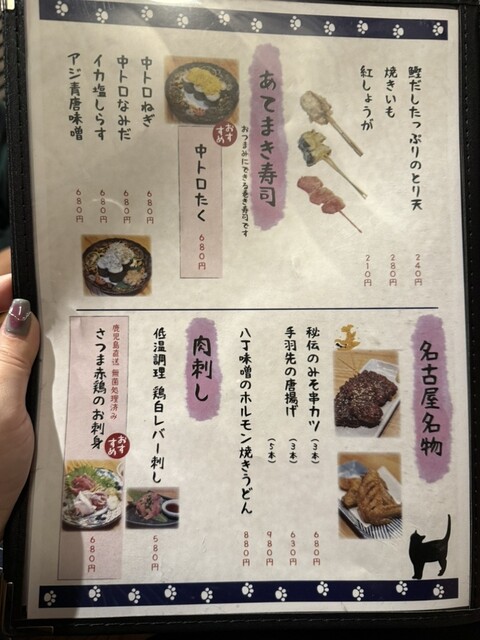 鰹だしたっぷりのとり天
240円
焼きいも
280円
紅しょうが
210円
あてまき寿司
おつまみにできる巻き寿司です
おすすめ
中トロたく
680円
中トロねぎ
680円
中トロなみだ
680円
イカ塩しらす
680円
アジ青唐味噌
680円
名古屋名物
秘伝のみそ串カツ(3本)
680円
手羽先の唐揚げ(3本)
630円
(5本)
980円
八丁味噌のホルモン焼きうどん
880円
肉刺し
低温調理 鶏白レバー刺し
580円
鹿児島直送 無菌処理済み
さつま赤鶏のお刺身
おすすめ
680円